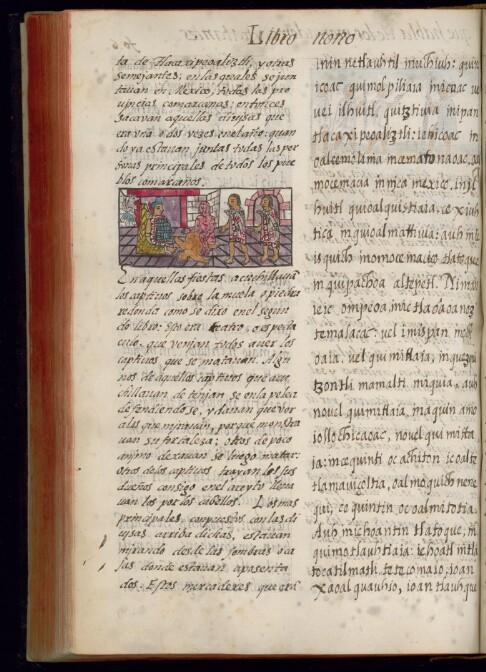 Libro nono
ta de tlacaxipeoaliztli, y otras
semejantes: en las quales se jun
tauan en Mexico, todas las pro
uincias comarcanas: entonces
sacavan aquellas diuisas que
era vna o dos vezes en el año: quan
do ya estauan juntas todas las per
sonas principales de todos los pue
blos comarcanos.
En aquellas fiestas acuchillauã
los captiuos sobre la muela o piedra
redonda como se dixo en el segun
do libro: esto era teatro, o especta
culo, que venjan todos a uer los
captiuos que se matauan. Algu
nos de aquellos captiuos que acu
chillauan de
defendiendose, y dauan que ver
a los que mirauan, porque monstra
uan su fortaleza: otros de poco
animo dexauan se luego matar:
Otros de los captiuos trayan los sus
dueños consigo en el areyto lleua
uan los por los cabellos. Los mas
principales, conpuestos con las di
uisas arriba dichas, estauan
mirando desde las sombras o ca
sas donde estauan aposenta
dos. Estos mercaderes que eran
inin netlauhtil muchiuh: quin
icoac quimolpiliaia, inicoac ve
vei ilhuitl, quitztiuia in ipan
tlacaxipeoaliztli: ie inicoac in
oalcemolinia in
mocemacia in nica mexico. In ce
quioalquistiaia, ce xiuh
tica in quioalmattiuia: auh in te
isquich inomocemacico tlatoque
in quipachoa altepetl. Niman
ieic ompeoa, in
temalacac: vel imispan
oaia: vel quimittaia,
tzontli mamalti miquia, auh
novel quimittaia, in aquin amo
iollo chicaoac, novel quimitta
ia: in cequinti oc achiton
tlamauiçoltia, oalmoquich nene
qui, cequintin oc oalmitotia.
Auh in iehoantin tlatoque, in
quimotlauhtiaia: iehoatl
ioan
xaoal quauhio, ioan tlauhque